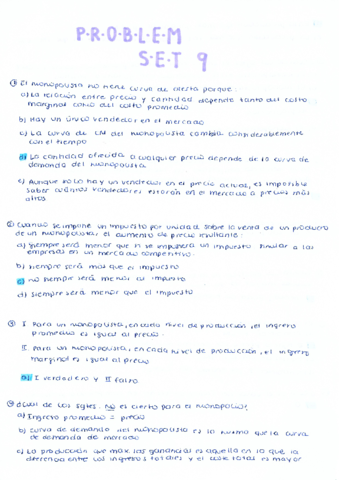 P·R·O·B·L·E·M
S·E·T 9
① El monopolista no tiene curva de oferta porque:
a) La relación entre precio y cantidad depende tanto del costo
marginal como del costo promedio
b) Hay un único vendedor en el mercado
c) La curva de CM del monopolista cambia considerablemente
con el tiempo
d) La cantidad ofrecida a cualquier precio depende de la curva de
demanda del monopolista
e) Aunque no lo hay un vendedor en el precio actual, es imposible
saber cuántos vendedores estarán en el mercado a precios más
altos
② Cuando se impone un impuesto por unidad sobre la venta de un producto
de un monopolista, el aumento de precio resultante:
a) siempre será menor que si se impusiera un impuesto similar a las
empresas en un mercado competitivo.
b) siempre será más que el impuesto
c) no siempre será menos al impuesto
d) siempre será menor que el impuesto
③ I Para un monopolista, en cada nivel de producción, el ingreso
promedio es igual al precio
II. Para un monopolista, en cada nivel de producción, el ingreso
marginal es igual al precio
a) I verdadero y II falso
④ ¿Cuál de los sgtes. no es cierto para el monopolio?
a) Ingreso promedio = precio
b) Curva de demanda del monopolista es la misma que la curva
de demanda de mercado
c) La producción que max. las ganancias es aquella en la que la
diferencia entre los ingresos totales y el coste total es mayor